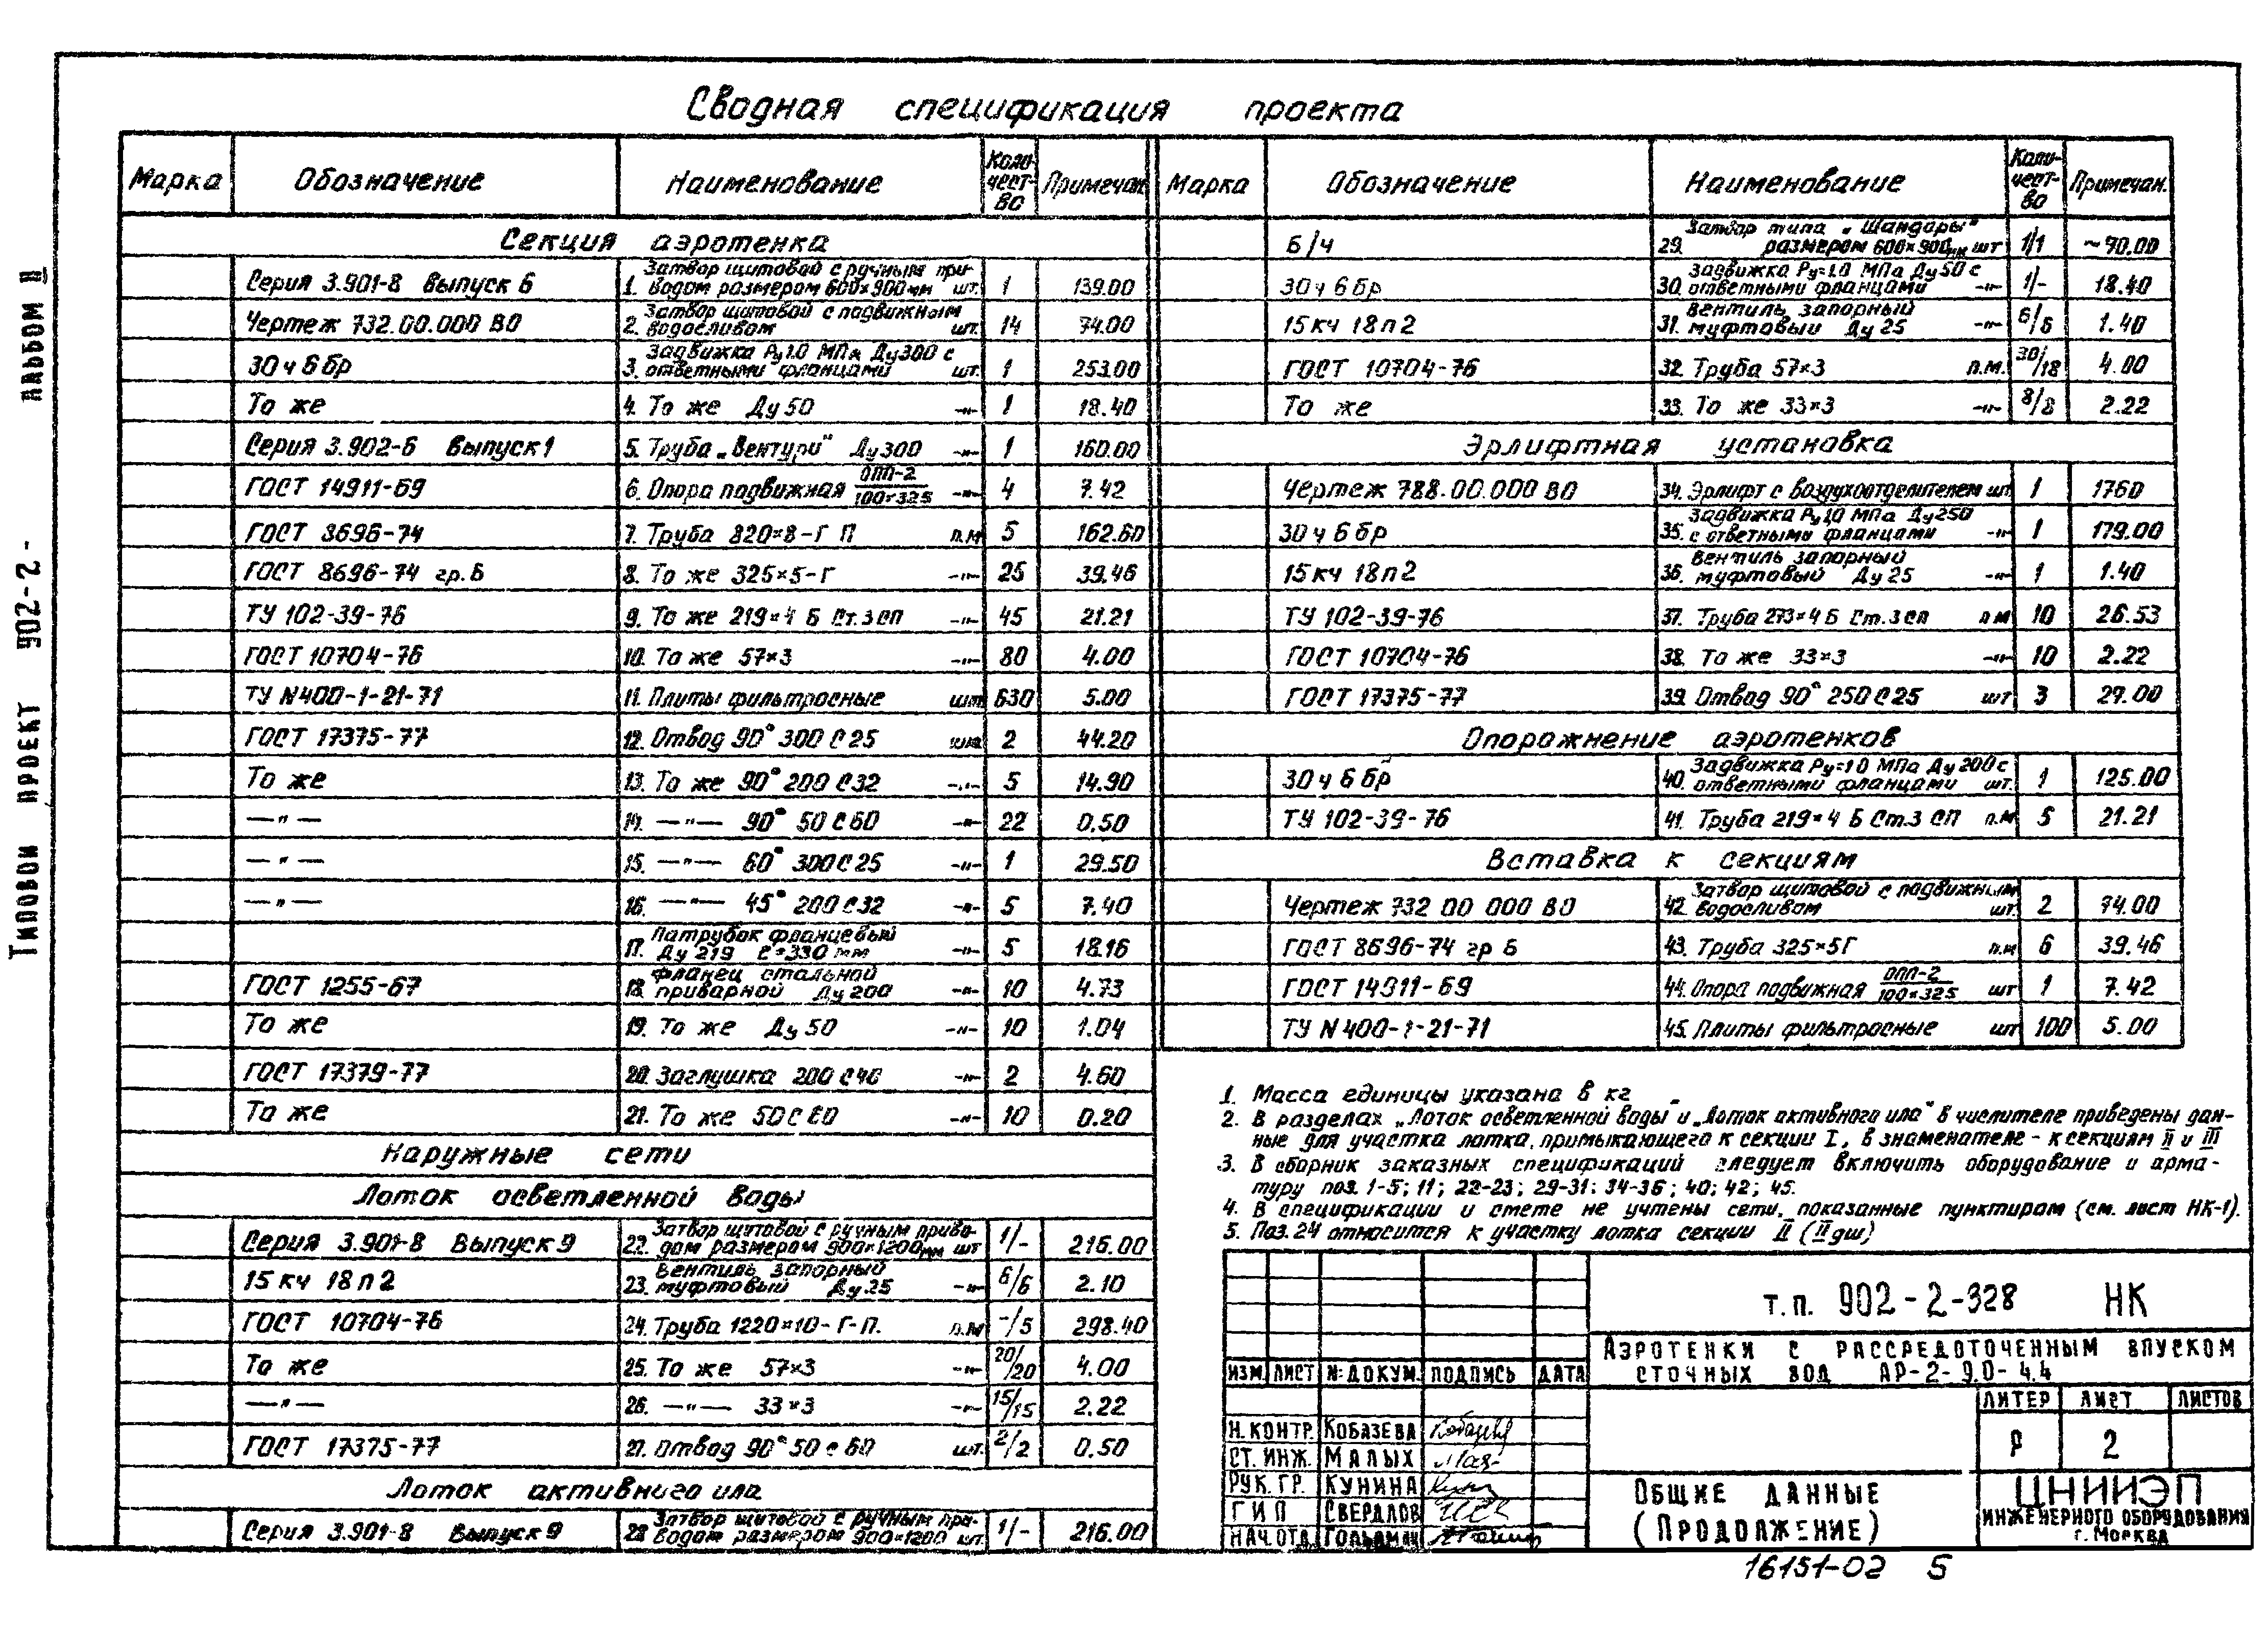 Сводная спецификация проекта
Марка Обозначение Наименование Количество Примечан.
Секция аэротенка
Серия 3.901-8 Выпуск 6 1. Затвор щитовой с ручным приводом размером 600×900мм шт. 1 139.00
Чертеж 732.00.000 ВО 2. Затвор щитовой с подвижным водосливом шт. 14 74.00
30ч6бр 3. Задвижка Ру1.0 МПа Ду300 с ответными фланцами шт. 1 253.00
То же 4. То же Ду50 -"- 1 18.40
Серия 3.902-6 Выпуск 1 5. Труба „Вентури" Ду300 -"- 1 160.00
ГОСТ 14911-69 6. Опора подвижная ОПП-2/100×325 -"- 4 7.42
ГОСТ 8696-74 7. Труба 820×8-Г П п.м 5 162.60
ГОСТ 8696-74 гр.Б 8. То же 325×5-Г -"- 25 39.46
ТУ 102-39-76 9. То же 219×4 Б Ст.3сп -"- 45 21.21
ГОСТ 10704-76 10. То же 57×3 -"- 80 4.00
ТУ N400-1-21-71 11. Плиты фильтросные шт 630 5.00
ГОСТ 17375-77 12. Отвод 90° 300 С25 шт 2 44.20
То же 13. То же 90° 200 С32 -"- 5 14.90
—"— 14. —"— 90° 50 С60 -"- 22 0.50
—"— 15. —"— 60° 300С25 -"- 1 29.50
—"— 16. —"— 45° 200С32 -"- 5 7.40
17. Патрубок фланцевый Ду 219 ℓ=330 мм -"- 5 18.16
ГОСТ 1255-67 18. Фланец стальной приварной Ду200 -"- 10 4.73
То же 19. То же Ду50 -"- 10 1.04
ГОСТ 17379-77 20. Заглушка 200 С40 -"- 2 4.60
То же 21. То же 50С60 -"- 10 0.20
Наружные сети
Лоток осветленной воды
Серия 3.901-8 Выпуск 9 22. Затвор щитовой с ручным приводом размером 900×1200мм шт 1/- 216.00
15кч 18п2 23. Вентиль запорный муфтовый Ду25 -"- 6/6 2.10
ГОСТ 10704-76 24. Труба 1220×10-Г-П. п.м -/5 298.40
То же 25. То же 57×3 -"- 20/20 4.00
—"— 26. —"— 33×3 -"- 15/15 2.22
ГОСТ 17375-77 27. Отвод 90° 50 С 60 шт. 2/2 0.50
Лоток активного ила
Серия 3.901-8 Выпуск 9 28. Затвор щитовой с ручным приводом размером 900×1200 шт. 1/- 216.00
Марка Обозначение Наименование Количество Примечан.
Б/ч 29. Затвор типа „Шандоры" размером 600×900мм шт 1/1 ~90.00
30ч6бр 30. Задвижка Ру=1.0 МПа Ду50 с ответными фланцами -"- 1/- 18.40
15кч 18п2 31. Вентиль запорный муфтовый Ду25 -"- 6/6 1.40
ГОСТ 10704-76 32. Труба 57×3 п.м. 30/18 4.00
То же 33. То же 33×3 -"- 8/8 2.22
Эрлифтная установка
Чертеж 788.00.000 ВО 34. Эрлифт с воздухоотделителем шт. 1 1760
30ч6бр 35. Задвижка Ру1.0 МПа Ду250 с ответными фланцами -"- 1 179.00
15кч 18п2 36. Вентиль запорный муфтовый Ду25 -"- 1 1.40
ТУ 102-39-76 37. Труба 273×4 Б Ст.3сп п м 10 26.53
ГОСТ 10704-76 38. То же 33×3 -"- 10 2.22
ГОСТ 17375-77 39. Отвод 90° 250 С25 шт 3 27.00
Опорожнение аэротенков
30ч6бр 40. Задвижка Ру=10 МПа Ду200 с ответными фланцами шт. 1 125.00
ТУ 102-39-76 41. Труба 219×4 Б Ст.3 СП п.м 5 21.21
Вставка к секциям
Чертеж 732 00 000 ВО 42. Затвор щитовой с подвижным водосливом шт. 2 74.00
ГОСТ 8696-74 гр Б 43. Труба 325×5Г п.м 6 39.46
ГОСТ 14911-69 44. Опора подвижная ОПП-2/100×325 шт 1 7.42
ТУ N400-1-21-71 45. Плиты фильтросные шт 100 5.00
1. Масса единицы указана в кг
2. В разделах „Лоток осветленной воды" и „Лоток активного ила" в числителе приведены дан-
ные для участка лотка, примыкающего к секции I, в знаменателе - к секциям II и III
3. В сборник заказных спецификаций следует включить оборудование и арма-
туру поз. 1-5; 11; 22-23; 29-31; 34-36; 40; 42; 45.
4. В спецификации и смете не учтены сети, показанные пунктиром (см. лист НК-1).
5. Поз. 24 относится к участку лотка секции II (II дш)
т.п. 902-2-328 НК
Аэротенки с рассредоточенным впуском
сточных вод АР-2-9.0-4.4
Изм. Лист № докум. Подпись Дата
Литер Лист Листов
Р 2
Н.контр. Кобазева
Ст. инж. Малых
Рук. гр. Кунина
ГИП Свердлов
Нач.отд. Гольдман
Общие данные
(Продолжение)
ЦНИИЭП
инженерного оборудования
г. Москва
16151-02 5
Типовой проект 902-2- Альбом II